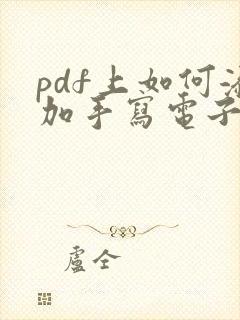 pdf上如何添
加手寫電子
盧仝